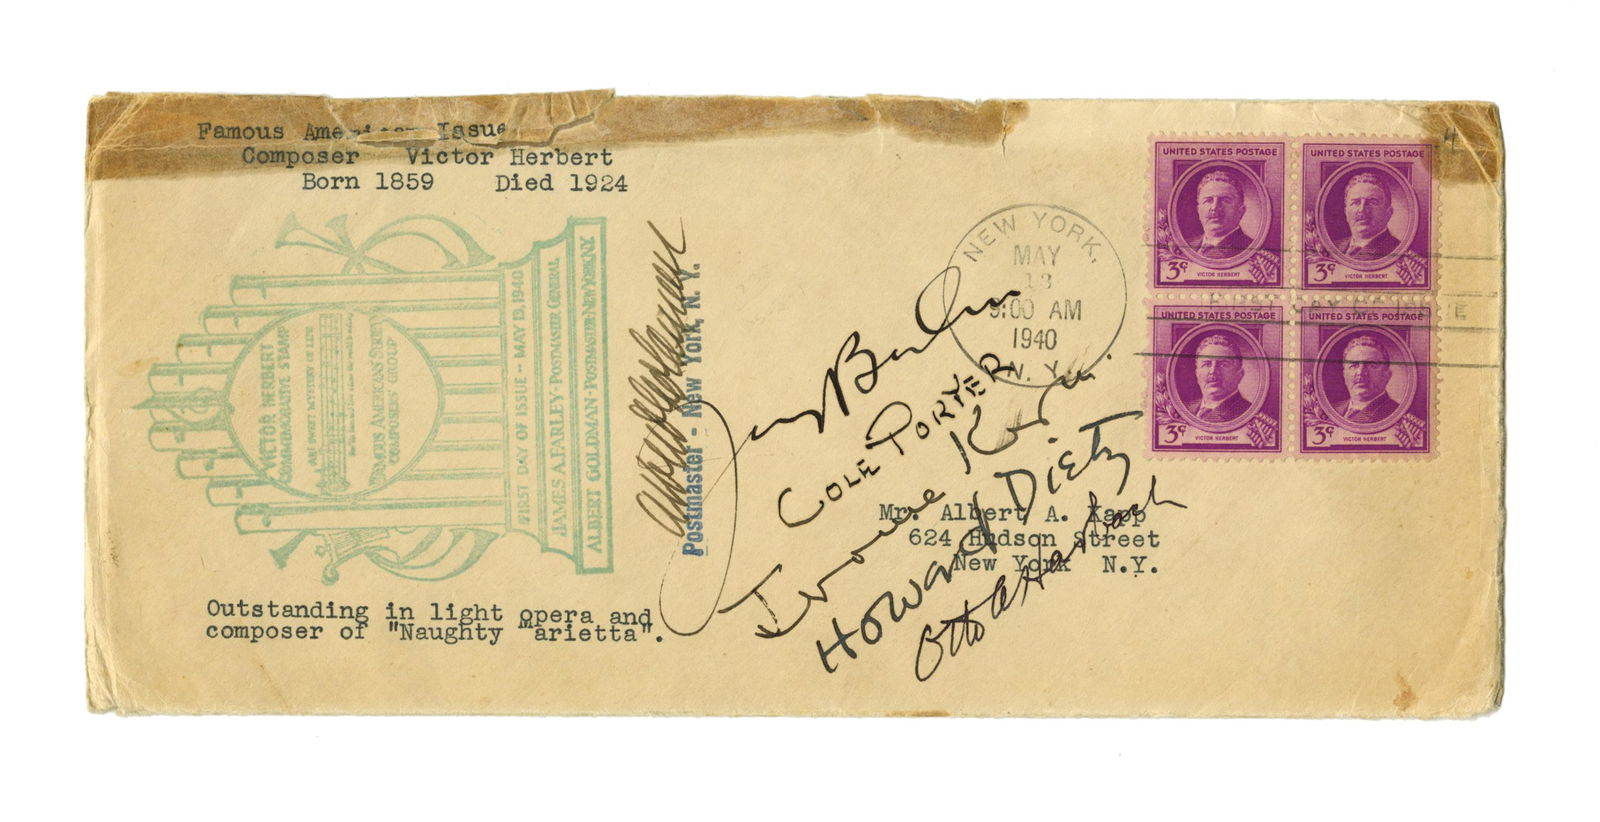 Famous American Issue
Composer Victor Herbert
Born 1859 Died 1924
4
UNITED STATES POSTAGE
3¢ VICTOR HERBERT
UNITED STATES POSTAGE
3¢ VICTOR HERBERT
UNITED STATES POSTAGE
3¢ VICTOR HERBERT
UNITED STATES POSTAGE
3¢ VICTOR HERBERT
NEW YORK,
MAY
13
9:00 AM
1940
N. Y.
VICTOR HERBERT
COMMEMORATIVE STAMP
AH! SWEET MYSTERY OF LIFE
FAMOUS AMERICANS SERIES
COMPOSERS' GROUP
FIRST DAY OF ISSUE -- MAY 13, 1940
JAMES A. FARLEY - POSTMASTER GENERAL
ALBERT GOLDMAN - POSTMASTER - NEW YORK, N.Y.
Postmaster - New York, N. Y.
Irving Berlin
COLE PORTER
Jerome Kern
Howard Dietz
Otto A Harbach
Mr. Albert A. Kapp
624 Hudson Street
New York N.Y.
Outstanding in light opera and
composer of "Naughty Marietta".